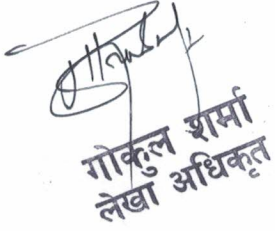 गोकुल शर्मा
लेखा अधिकृत